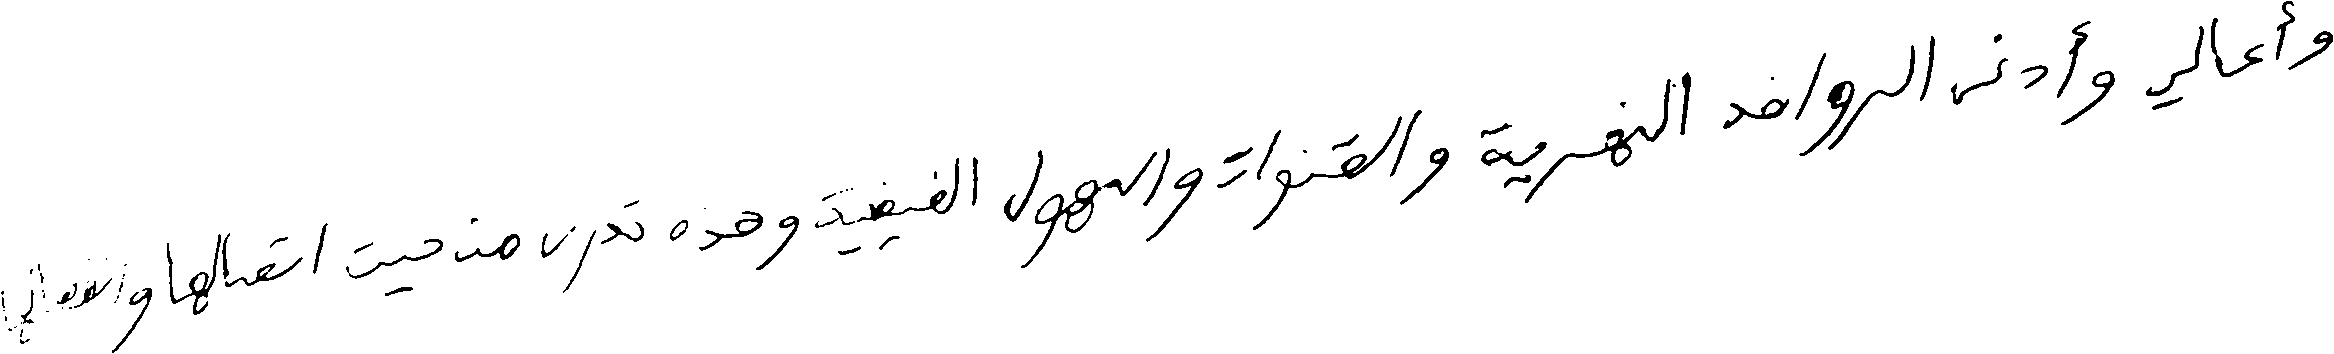 وأعالي وأدنى الروافد النهرية والقنوات والسهول الفيضية وهذه تدرس من حيث اتصالها وانفصالها